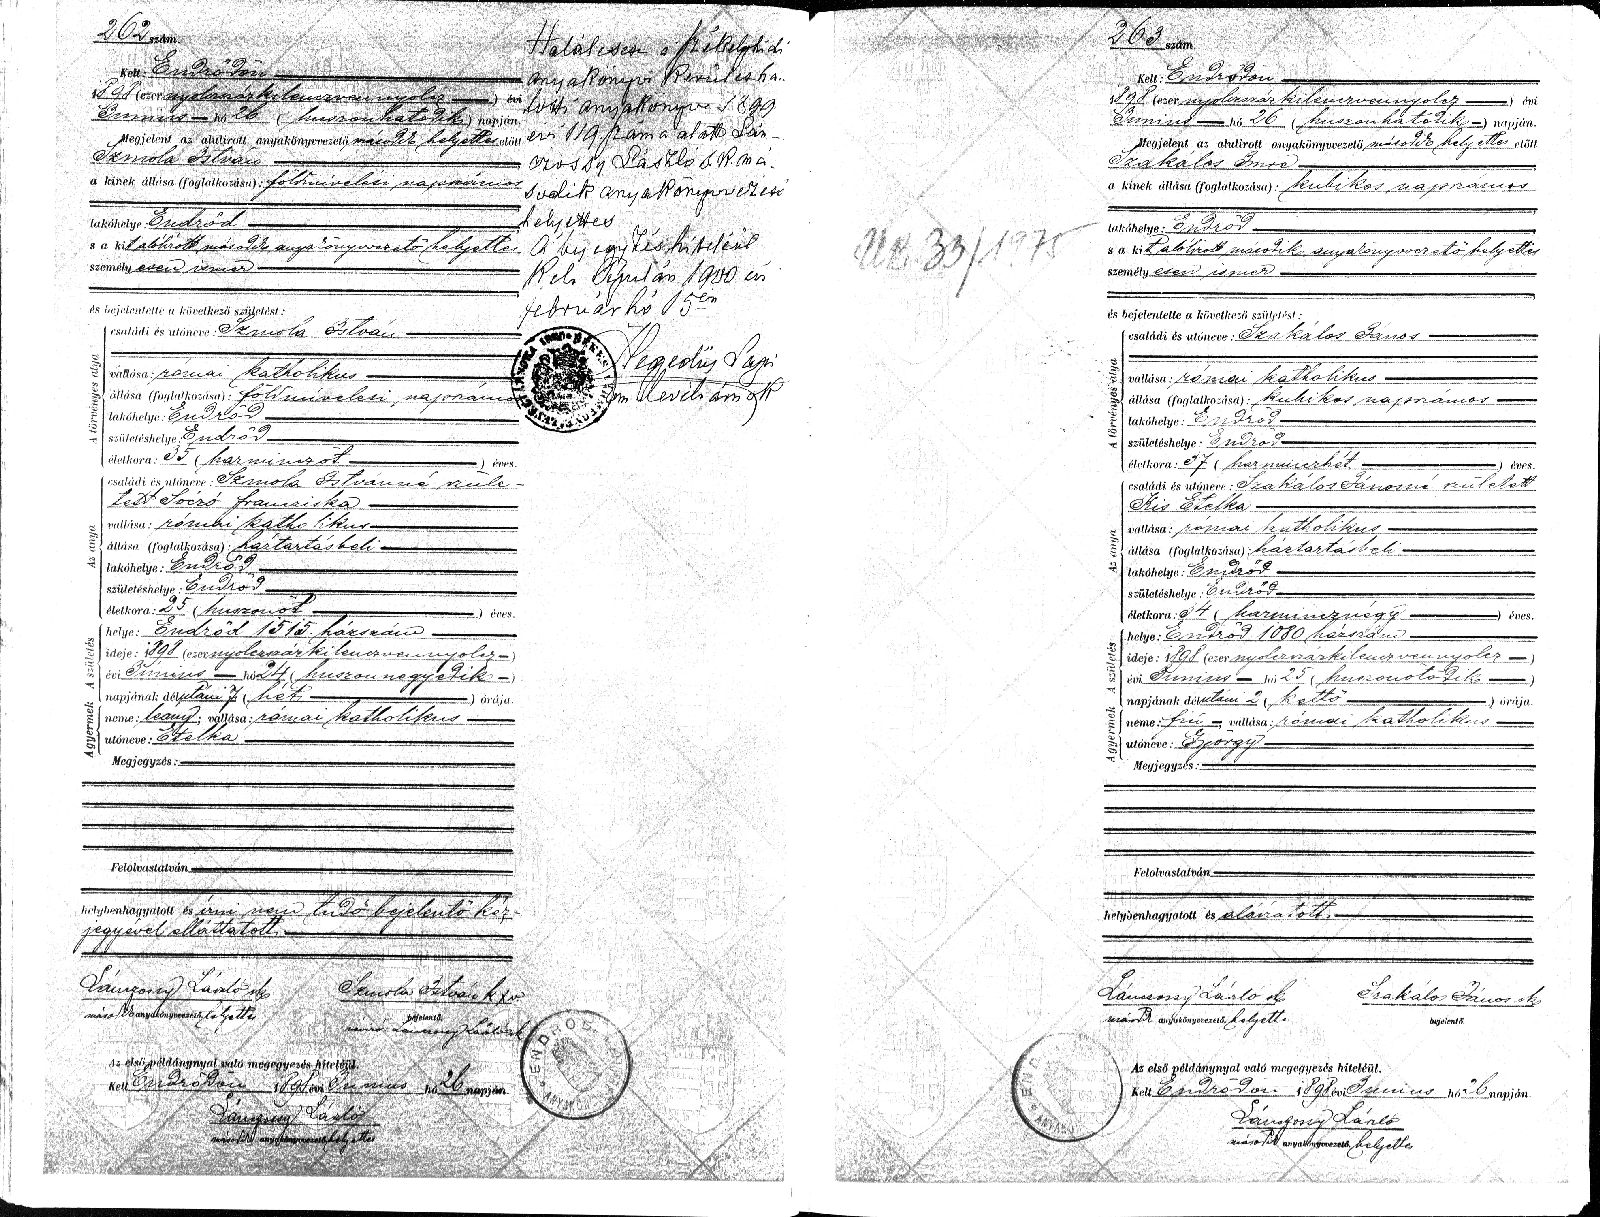 262 szám.
Kelt: Endrődön
1898 (ezernyolczszázkilenczvennyolcz) évi
Június hó 26 (huszonhatodik) napján.
Megjelent az alulirott anyakönyvezető második helyettes előtt
Szmola István
a kinek állása (foglalkozása): földmívelési napszámos
lakóhelye Endrőd
s a kit alólírott második anyakönyvvezető helyettes
személyesen ismer
és bejelentette a következő születést:
A törvényes atya
családi és utóneve: Szmola István
vallása: római katholikus
állása (foglalkozása): földmívelési napszámos
lakóhelye: Endrőd
születéshelye: Endrőd
életkora: 35 (harminczöt) éves.
Az anya
családi és utóneve: Szmola Istvánné szüle-
tett Soczó Franciska
vallása: római katholikus
állása (foglalkozása): háztartásbeli
lakóhelye: Endrőd
születéshelye: Endrőd
életkora: 25 (huszonöt) éves.
A születés
helye: Endrőd 1515 házszám
ideje: 1898 (ezernyolczszázkilenczvennyolcz)
évi Június hó 24 (huszonnegyedik)
napjának délutáni 7 (hét) órája.
A gyermek
neme: leány; vallása: római katholikus
utóneve: Etelka
Megjegyzés:
Felolvastatván
helybenhagyatott és írni nem tudó bejelentő kéz-
jegyével elláttatott.
Lánczony László sk
másodk anyakönyvvezető, helyettes
Szmola István k. v.
bejelentő
Lánczony László sk
Az első példánynyal való megegyezés hiteléül.
Kelt Endrődön 1898 évi Június hó 26 napján.
Lánczony László
másodk anyakönyvvezető, helyettes
Halálesete a
anyakönyvi kerület ha-
lotti anyakönyve 1899
évi 119 száma alatt Lán-
László s.k. má-
sodik anyakönyvvezető
helyettes
A bejegyzés hiteléül
Kelt Gyulán 1900 évi
február hó 15én
Hegedűs
ENDRŐD
263 szám
Kelt: Endrődön
1898 (ezernyolczszázkilenczvennyolcz) évi
Június hó 26 (huszonhatodik) napján.
Megjelent az alulirott anyakönyvezető második helyettes előtt
Szakálos Imre
a kinek állása (foglalkozása): kubikos napszámos
lakóhelye: Endrőd
s a kit alólírott második anyakönyvvezető helyettes
személyesen ismer
és bejelentette a következő születést:
A törvényes atya
családi és utóneve: Szakálos János
vallása: római katholikus
állása (foglalkozása): kubikos napszámos
lakóhelye: Endrőd
születéshelye: Endrőd
életkora: 37 (harminczhét) éves.
Az anya
családi és utóneve: Szakálos Jánosné született
Kis Etelka
vallása: római katholikus
állása (foglalkozása): háztartásbeli
lakóhelye: Endrőd
születéshelye: Endrőd
életkora: 34 (harmincznégy) éves.
A születés
helye: Endrőd 1080 házszám
ideje: 1898 (ezernyolczszázkilenczvennyolcz)
évi Június hó 25 (huszonötödik)
napjának délutáni 2 (kettő) órája.
A gyermek
neme: fiú vallása: római katholikus
utóneve: György
Megjegyzés:
Felolvastatván
helybenhagyatott és aláíratott.
Lánczony László sk
másodk anyakönyvvezető, helyettes
Szakálos János sk
bejelentő.
Az első példánynyal való megegyezés hiteléül.
Kelt Endrődön 1898 évi Június hó 26 napján
Lánczony László
másodk anyakönyvvezető, helyettes
33/1975